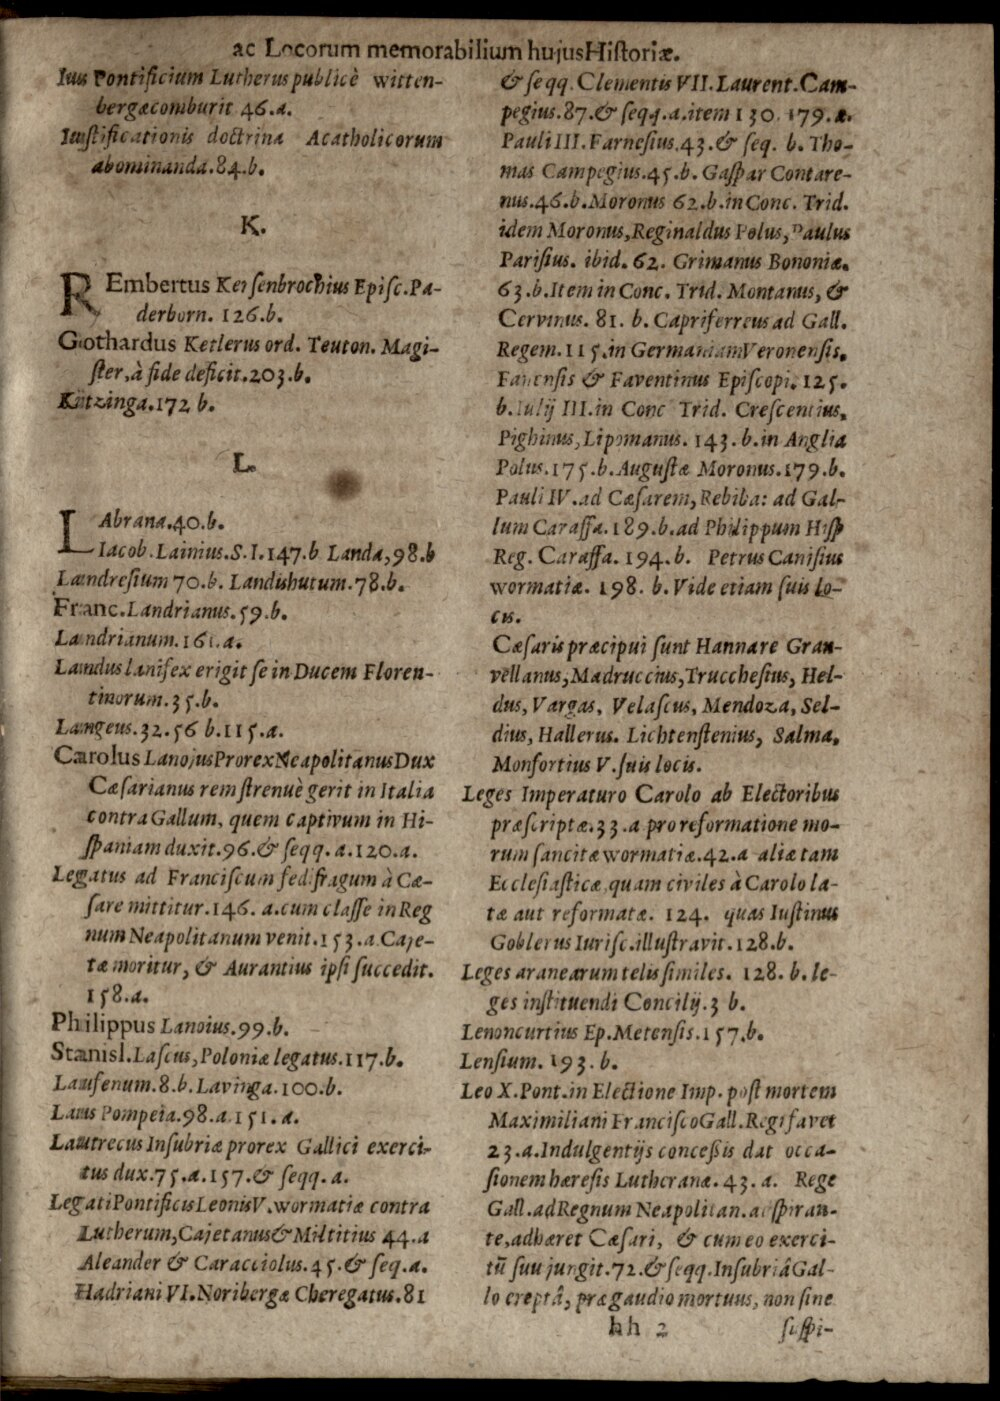 ac Locorum memorabilium hujus Historiæ.
Ius Pontificium Lutherus publicè witten-
bergæ comburit 46.a.
Iustificationis doctrina Acatholicorum
abominanda.84.b.
K.
REmbertus Kersenbrochius Episc.Pa-
derborn. 126.b.
Gothardus Ketlerus ord. Teuton. Magi-
ster, à fide deficit.203.b.
Kitzinga.172 b.
L.
LAbrana.40.b.
Iacob.Lainius.S.I.147.b Landa,98.b
Landresium 70.b. Landishutum.78.b.
Franc.Landrianus.59.b.
Landrianum.161.a.
Landus lanifex erigit se in Ducem Floren-
tinorum.35.b.
Langeus.32.56 b.115.a.
Carolus Lanojus Prorex Neapolitanus Dux
Cæsarianus rem strenuè gerit in Italia
contra Gallum, quem captivum in Hi-
spaniam duxit.96.& seqq. a.120.a.
Legatus ad Franciscum fedifragum à Cæ-
sare mittitur.146. a.cum classe in Reg
num Neapolitanum venit.153.a Caje-
tæ moritur, & Aurantius ipsi succedit.
158.a.
Philippus Lanoius.99.b.
Stanisl.Lascus, Poloniæ legatus.117.b.
Lausenum.8.b.Lavinga.100.b.
Laus Pompeia.98.a.151.a.
Lautrecus Insubriæ prorex Gallici exerci-
tus dux.75.a.157.& seqq. a.
Legati Pontificis Leonis V. wormatiæ contra
Lutherum, Cajetanus & Miltitius 44.a
Aleander & Caracciolus.45.& seq.a.
Hadriani VI.Noribergæ Cheregatus.81
& seqq. Clementis VII.Laurent.Cam-
pegius.87.& seqq.a.item 130. 179.a.
Pauli III. Farnesius.43.& seq. b. Tho-
mas Campegius.45.b. Gaspar Contare-
nus.46.b.Moronus 62.b.in Conc. Trid.
idem Moronus, Reginaldus Polus, Paulus
Parisius. ibid. 62. Grimanus Bononiæ.
63.b.Item in Conc. Trid. Montanus, &
Cervinus. 81. b. Capriferreus ad Gall.
Regem.115.in Germaniam Veronensis,
Fanensis & Faventinus Episcopi.125.
b.Iulij III.in Conc Trid. Crescentius,
Pighinus, Lipomanus. 143.b.in Anglia
Polus.175.b.Augustæ Moronus.179.b.
Pauli IV.ad Cæsarem, Rebiba: ad Gal-
lum Caraffa. 189.b.ad Philippum Hisp
Reg. Caraffa. 194.b. Petrus Canisius
wormatiæ. 198. b. Vide etiam suis lo-
cis.
Cæsaris præcipui sunt Hannare Gran-
vellanus, Madruccius, Trucchesius, Hel-
dus, Vargas, Velascus, Mendoza, Sel-
dius, Hallerus. Lichtenstenius, Salma,
Monfortius V. suis locis.
Leges Imperaturo Carolo ab Electoribus
præscriptæ.33.a pro reformatione mo-
rum sancitæ wormatiæ.42.a aliæ tam
Ecclesiasticæ quam civiles à Carolo la-
tæ aut reformatæ. 124. quas Iustinus
Goblerus Iurisc.illustravit.128.b.
Leges aranearum telis similes. 128. b. le-
ges instituendi Concilij.3 b.
Lenoncurtius Ep.Metensis.157.b.
Lensium. 193. b.
Leo X.Pont.in Electione Imp. post mortem
Maximiliani Francisco Gall.Regi favet
23.a.Indulgentijs concessis dat occa-
sionem hæresis Lutheranæ.43. a. Rege
Gall.ad Regnum Neapolitan.adspiran-
te, adhæret Cæsari, & cum eo exerci-
tũ suu jungit.72.& seqq.Insubriâ Gal-
lo ereptâ, præ gaudio mortuus, non sine
hh 2 suspi-